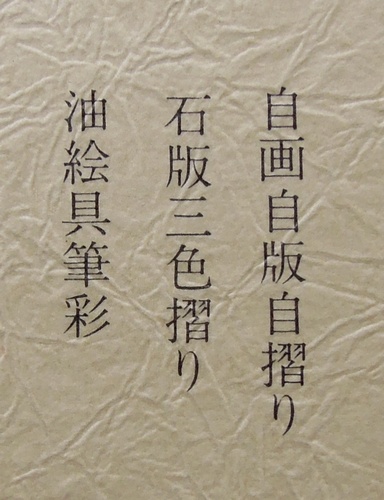 自画自版自摺り
石版三色摺り
油絵具筆彩